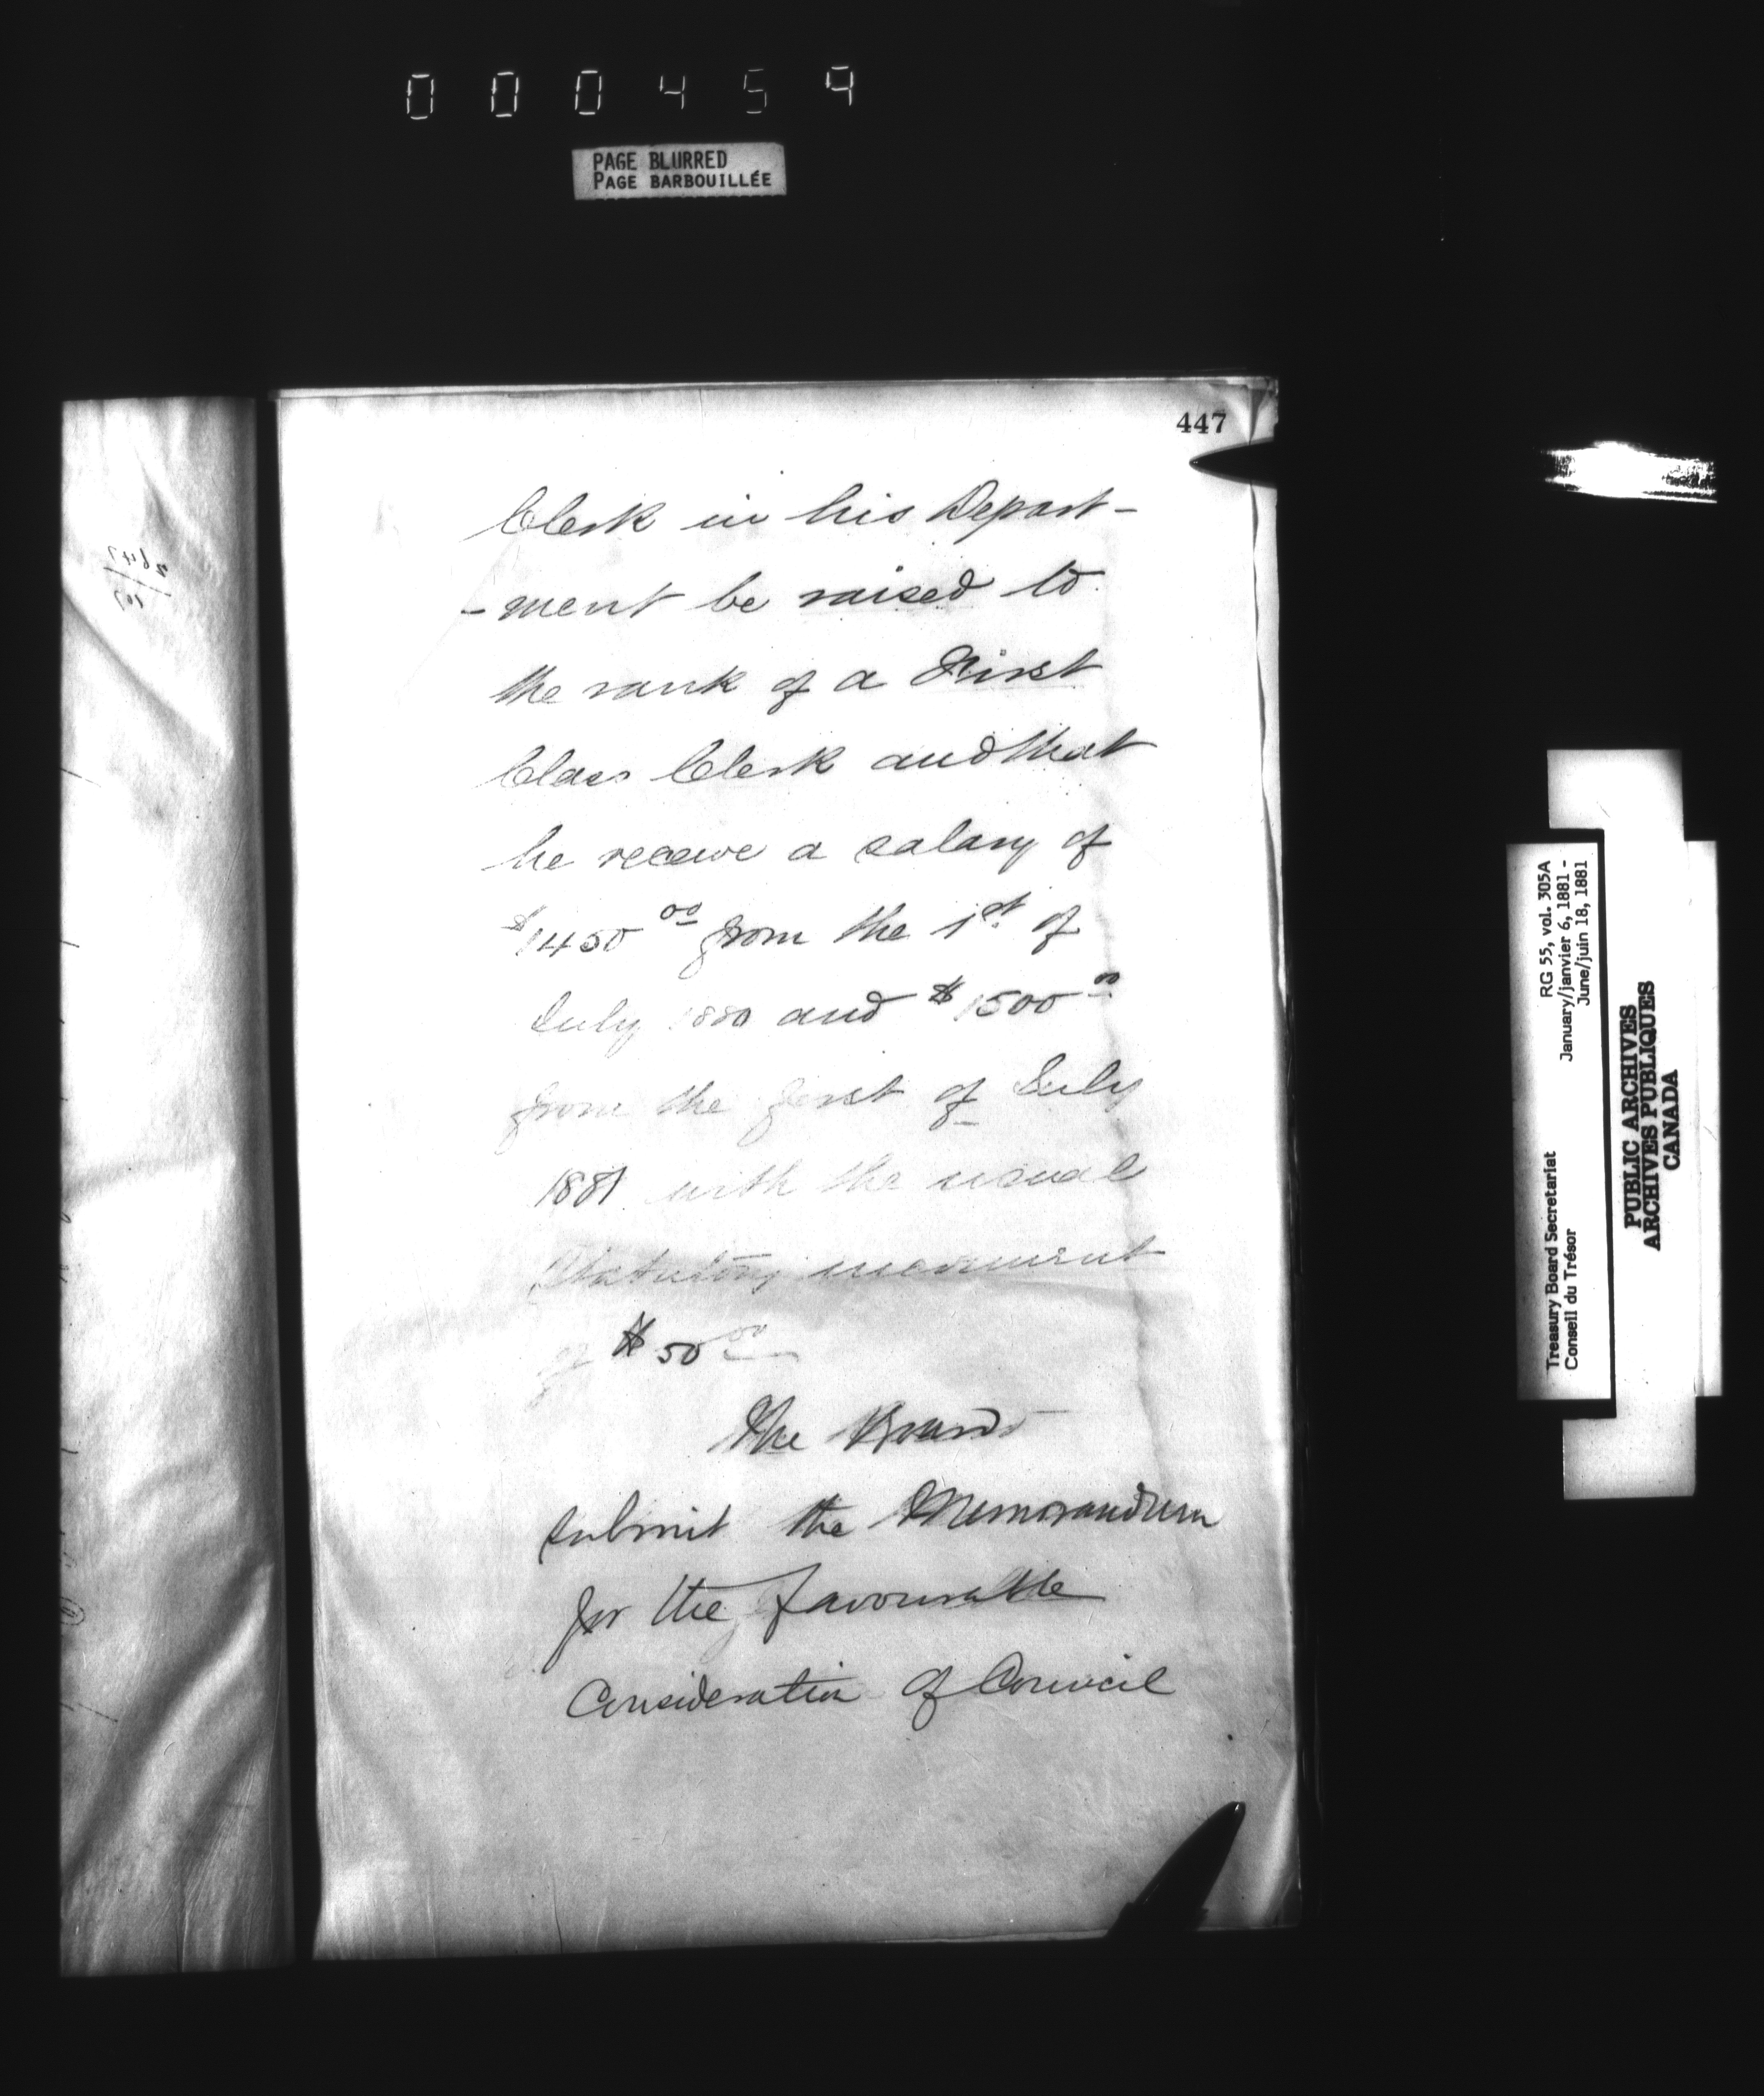 000459
PAGE BLURRED
PAGE BARBOUILLÉE
447
Clerk in his Depart-
-ment be raised to
the rank of a First
Class Clerk and that
he receive a salary of
$1450 00 from the 1st. of
July 1880 and $1500 00
from the first of July
1881 with the usual
Statutory increment
of $50 00
The Board
submit the Memorandum
for the favourable
Consideration of Council
RG 55, vol. 305A
January/janvier 6, 1881 -
June/juin 18, 1881
Treasury Board Secretariat
Conseil du Trésor
PUBLIC ARCHIVES
ARCHIVES PUBLIQUES
CANADA